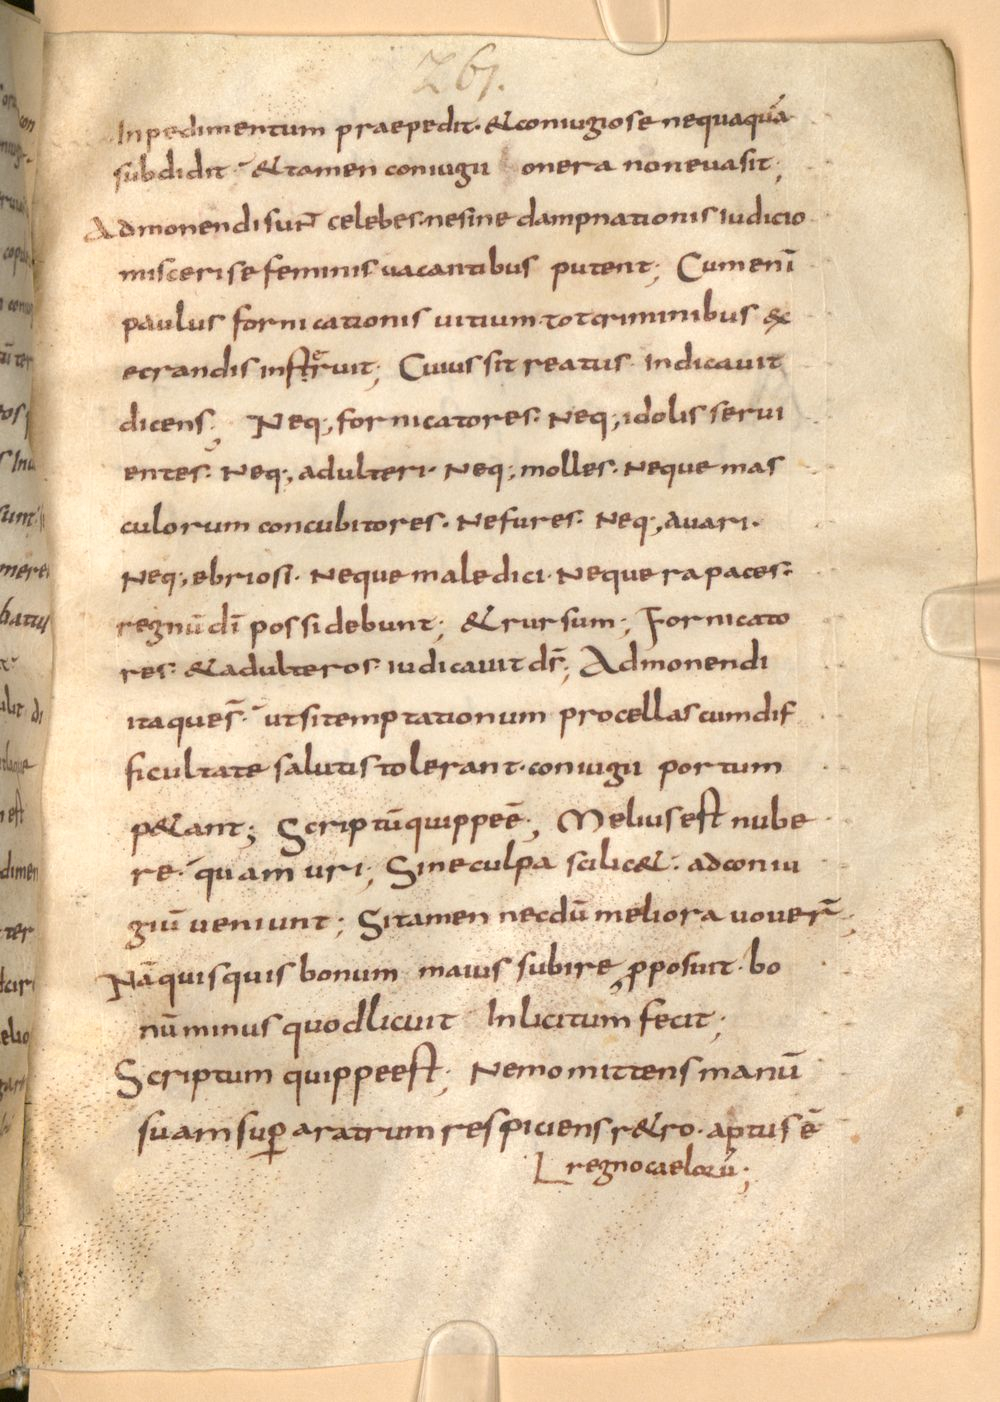 261.
Inpedimentum praepedit· &coniugiose nequaquā
subdidit· &tamen coniugii onera nonevasit;
Admonendi sun̄t celebes· nesine dampnationis iudicio
misceri se feminis vacantibus putent; Cumenī
paulus fornicationis vitium· totcriminibus ex
ecrandis inseruit; Cuius sit reatus· indicavit
dicens; Neq; fornicatores· Neq; idolis servi
entes· Neq; adulteri· Neq; molles· Neque mas
culorum concubitores· Nefures· Neq; avari·
Neq; ebriosi· Neque maledici· Neque rapaces·
regnū dī possidebunt; &rursum; Fornicato
res· &adulteros· iudicavit ds̄; Admonendi
itaque s̄· utsitemptationum procellas cumdif
ficultate salutis tolerant· coniugii portum
p&ant; Scriptū quippe ē; Melius est nube
re· quam uri; Sineculpa scilic&· adconiu
giū veniunt; Sitamen necdū meliora vover̄;
Nā quisquis bonum maius subire p̱posuit· bo
nū minus quodlicuit Inlicitum fecit;
Scriptum quippe est; Nemo mittens manū
suam sup̱ aratrum respiciens r&ro· aptus ē
regno caelorū;